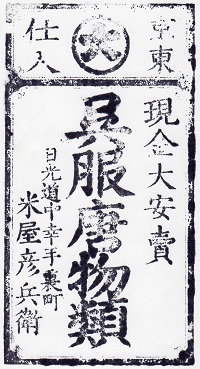 東京
大
仕入
現金大安賣
呉服唐物類
日光道中幸手裏町
米屋彦兵衛